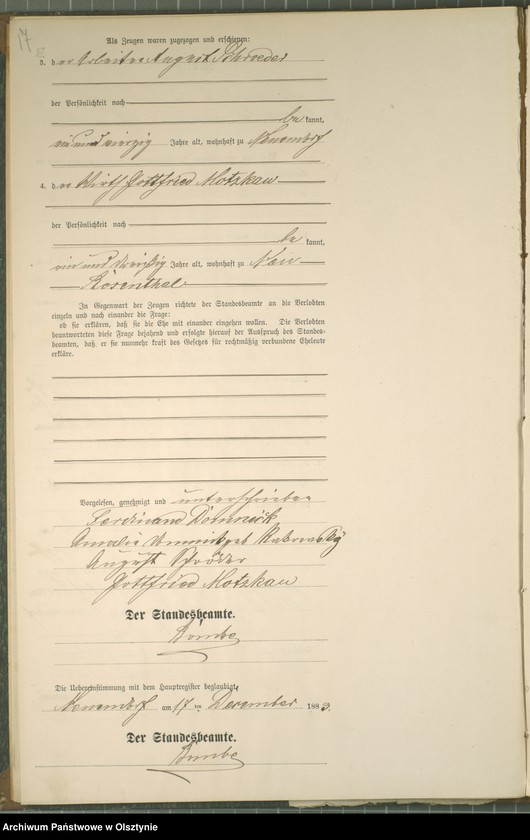 17
Als Zeugen waren zugezogen und erschienen:
3. der Arbeiter August Schroeder
der Persönlichkeit nach
be kannt,
ein und vierzig Jahre alt, wohnhaft zu Neuendorf
4. der Wirth Gottfried Motzkau
der Persönlichkeit nach
be kannt,
ein und dreißig Jahre alt, wohnhaft zu Neu
Rosenthal
In Gegenwart der Zeugen richtete der Standesbeamte an die Verlobten
einzeln und nach einander die Frage:
ob sie erklären, daß sie die Ehe mit einander eingehen wollen. Die Verlobten
beantworteten diese Frage bejahend und erfolgte hierauf der Ausspruch des Standes-
beamten, daß er sie nunmehr kraft des Gesetzes für rechtmäßig verbundene Eheleute
erkläre.
Vorgelesen, genehmigt und unterschrieben
Ferdinand Domnick
Amalie Domnick geb
August Schröder
Gottfried Motzkau
Der Standesbeamte.
Die Uebereinstimmung mit dem Hauptregister beglaubigt
Neuendorf am 17 ten December 1883.
Der Standesbeamte.
Archiwum Państwowe w Olsztynie